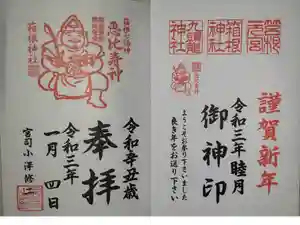 箱根七福神
恵比寿神
箱根神社
奉拝
令和辛丑歳
令和三年
一月四日
宮司小澤修二
箱根元宮
箱根神社
九頭龍神社
謹賀新年
令和三年睦月
御神印
ようこそお参り下さいました
良き年をお送り下さい